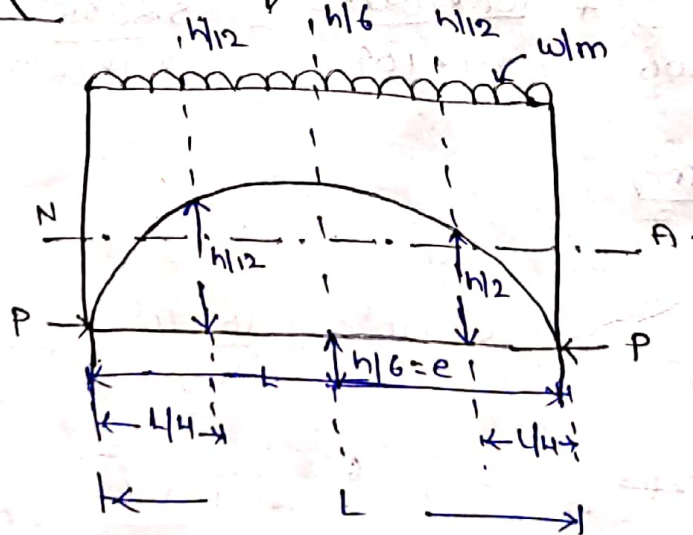 h/12 h/6 h/12 w/m
N A
h/12 h/2
P P
h/6=e
L
L/4 L/4
L